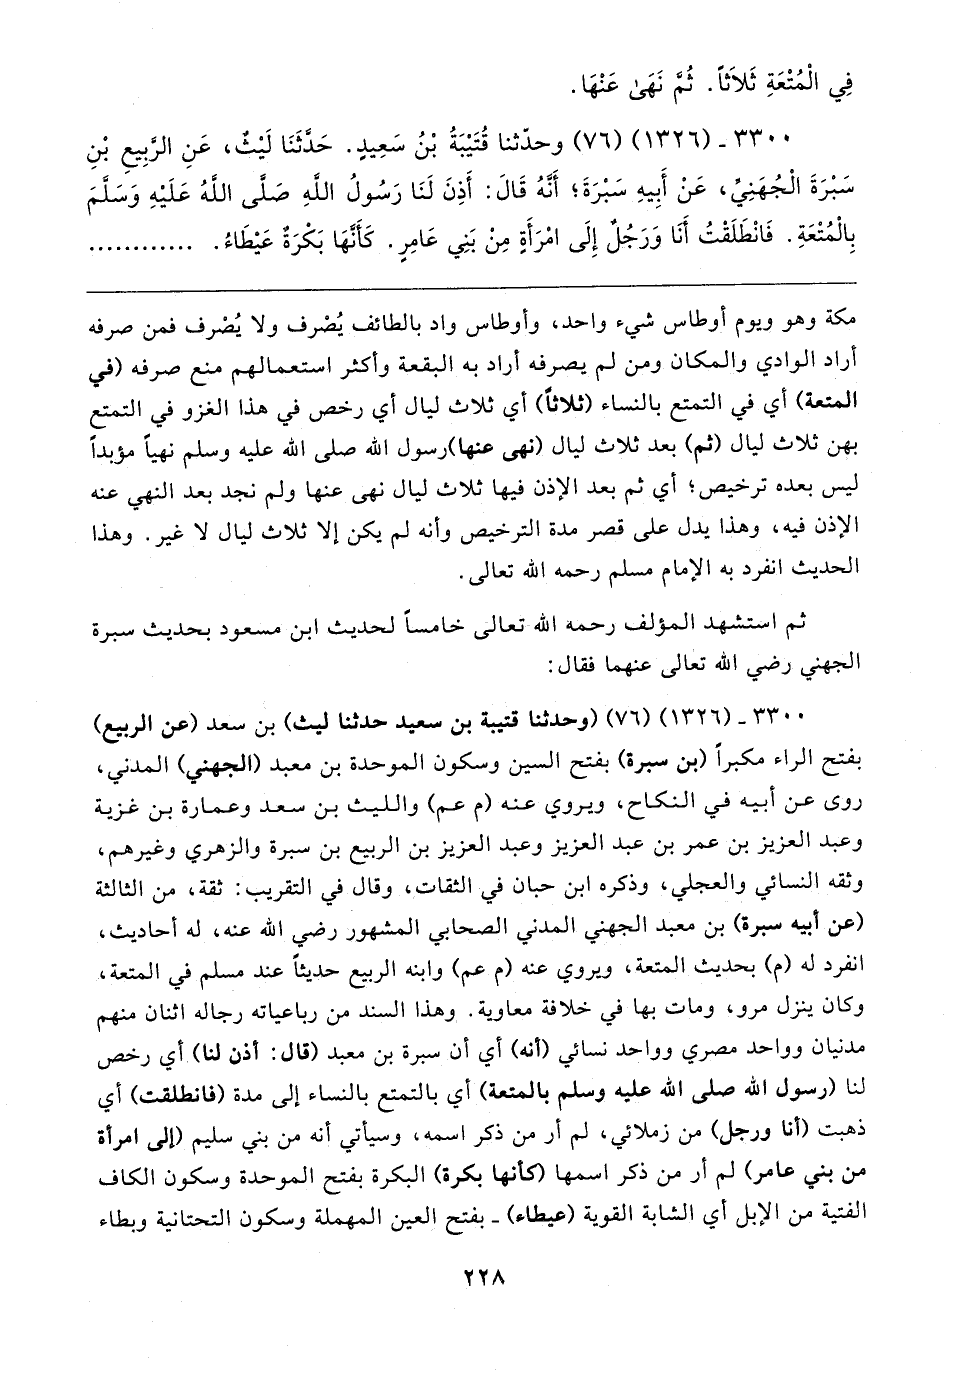 فِي الْمُتْعَةِ ثَلَاثاً. ثُمَّ نَهَىٰ عَنْهَا.
٣٣٠٠ ـ (١٣٢٦) (٧٦) وحدّثنا قُتَيْبَةُ بْنُ سَعِيدٍ. حَدَّثَنَا لَيْثٌ، عَنِ الرَّبِيعِ بْنِ
سَبْرَةَ الْجُهَنِيِّ، عَنْ أَبِيهِ سَبْرَةَ؛ أَنَّهُ قَالَ: أَذِنَ لَنَا رَسُولُ اللَّهِ صَلَّى اللَّهُ عَلَيْهِ وَسَلَّمَ
بِالْمُتْعَةِ. فَانْطَلَقْتُ أَنَا وَرَجُلٌ إِلَى امْرَأَةٍ مِنْ بَنِي عَامِرٍ. كَأَنَّهَا بَكْرَةٌ عَيْطَاءُ. ............
مكة وهو ويوم أوطاس شيء واحد، وأوطاس واد بالطائف يُصْرف ولا يُصْرف فمن صرفه
أراد الوادي والمكان ومن لم يصرفه أراد به البقعة وأكثر استعمالهم منع صرفه (في
المتعة) أي في التمتع بالنساء (ثلاثاً) أي ثلاث ليال أي رخص في هذا الغزو في التمتع
بهن ثلاث ليال (ثم) بعد ثلاث ليال (نهى عنها)رسول الله صلى الله عليه وسلم نهياً مؤبداً
ليس بعده ترخيص؛ أي ثم بعد الإذن فيها ثلاث ليال نهى عنها ولم نجد بعد النهي عنه
الإذن فيه، وهذا يدل على قصر مدة الترخيص وأنه لم يكن إلا ثلاث ليال لا غير. وهذا
الحديث انفرد به الإمام مسلم رحمه الله تعالى.
ثم استشهد المؤلف رحمه الله تعالى خامساً لحديث ابن مسعود بحديث سبرة
الجهني رضي الله تعالى عنهما فقال:
٣٣٠٠ ـ (١٣٢٦) (٧٦) (وحدثنا قتيبة بن سعيد حدثنا ليث) بن سعد (عن الربيع)
بفتح الراء مكبراً (بن سبرة) بفتح السين وسكون الموحدة بن معبد (الجهني) المدني،
روى عن أبيه في النكاح، ويروي عنه (م عم) والليث بن سعد وعمارة بن غزية
وعبد العزيز بن عمر بن عبد العزيز وعبد العزيز بن الربيع بن سبرة والزهري وغيرهم،
وثقه النسائي والعجلي، وذكره ابن حبان في الثقات، وقال في التقريب: ثقة، من الثالثة
(عن أبيه سبرة) بن معبد الجهني المدني الصحابي المشهور رضي الله عنه، له أحاديث،
انفرد له (م) بحديث المتعة، ويروي عنه (م عم) وابنه الربيع حديثاً عند مسلم في المتعة،
وكان ينزل مرو، ومات بها في خلافة معاوية. وهذا السند من رباعياته رجاله اثنان منهم
مدنيان وواحد مصري وواحد نسائي (أنه) أي أن سبرة بن معبد (قال: أذن لنا) أي رخص
لنا (رسول الله صلى الله عليه وسلم بالمتعة) أي بالتمتع بالنساء إلى مدة (فانطلقت) أي
ذهبت (أنا ورجل) من زملائي، لم أر من ذكر اسمه، وسيأتي أنه من بني سليم (إلى امرأة
من بني عامر) لم أر من ذكر اسمها (كأنها بكرة) البكرة بفتح الموحدة وسكون الكاف
الفتية من الإبل أي الشابة القوية (عيطاء) ـ بفتح العين المهملة وسكون التحتانية وبطاء
٢٢٨